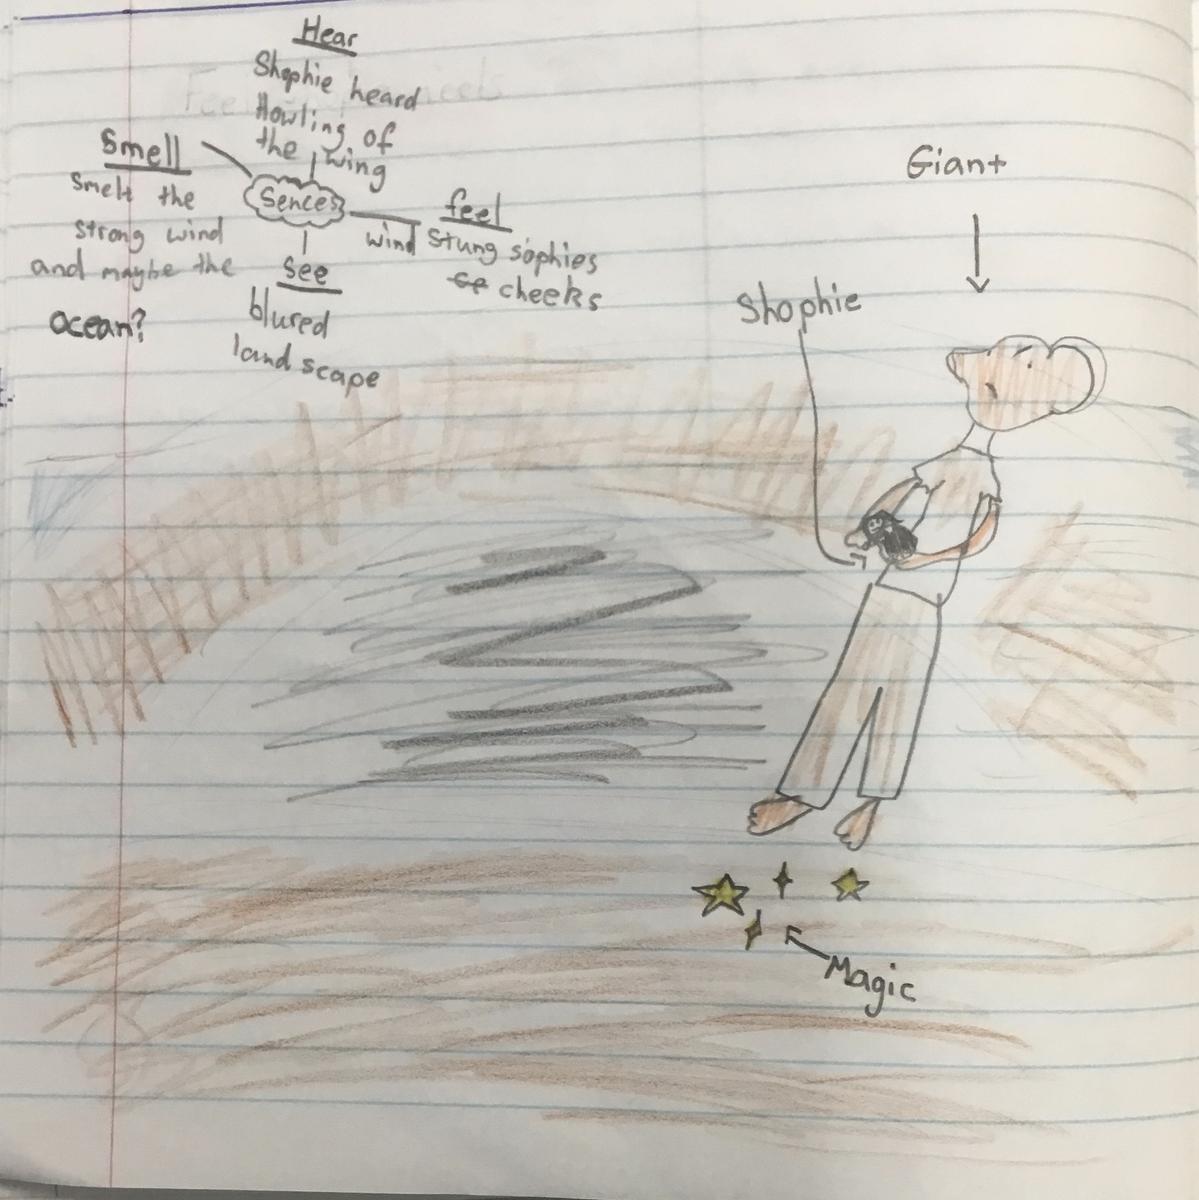 Hear
Shophie heard
Howling of
the wing
Smell
Smelt the
strong wind
and maybe the
ocean?
Sences
feel
wind stung sophies
cheeks
See
blured
landscape
Giant
Shophie
Magic